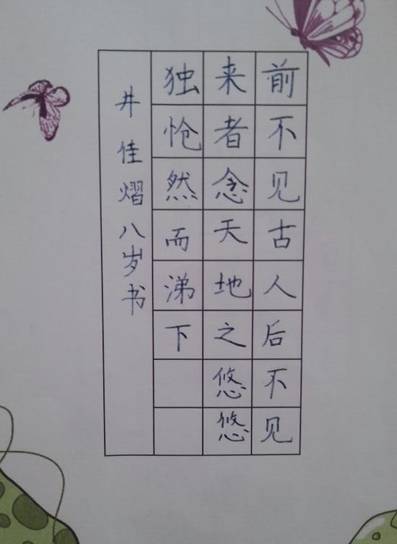 前不见古人后不见
来者念天地之悠悠
独怆然而涕下
井佳熠八岁书